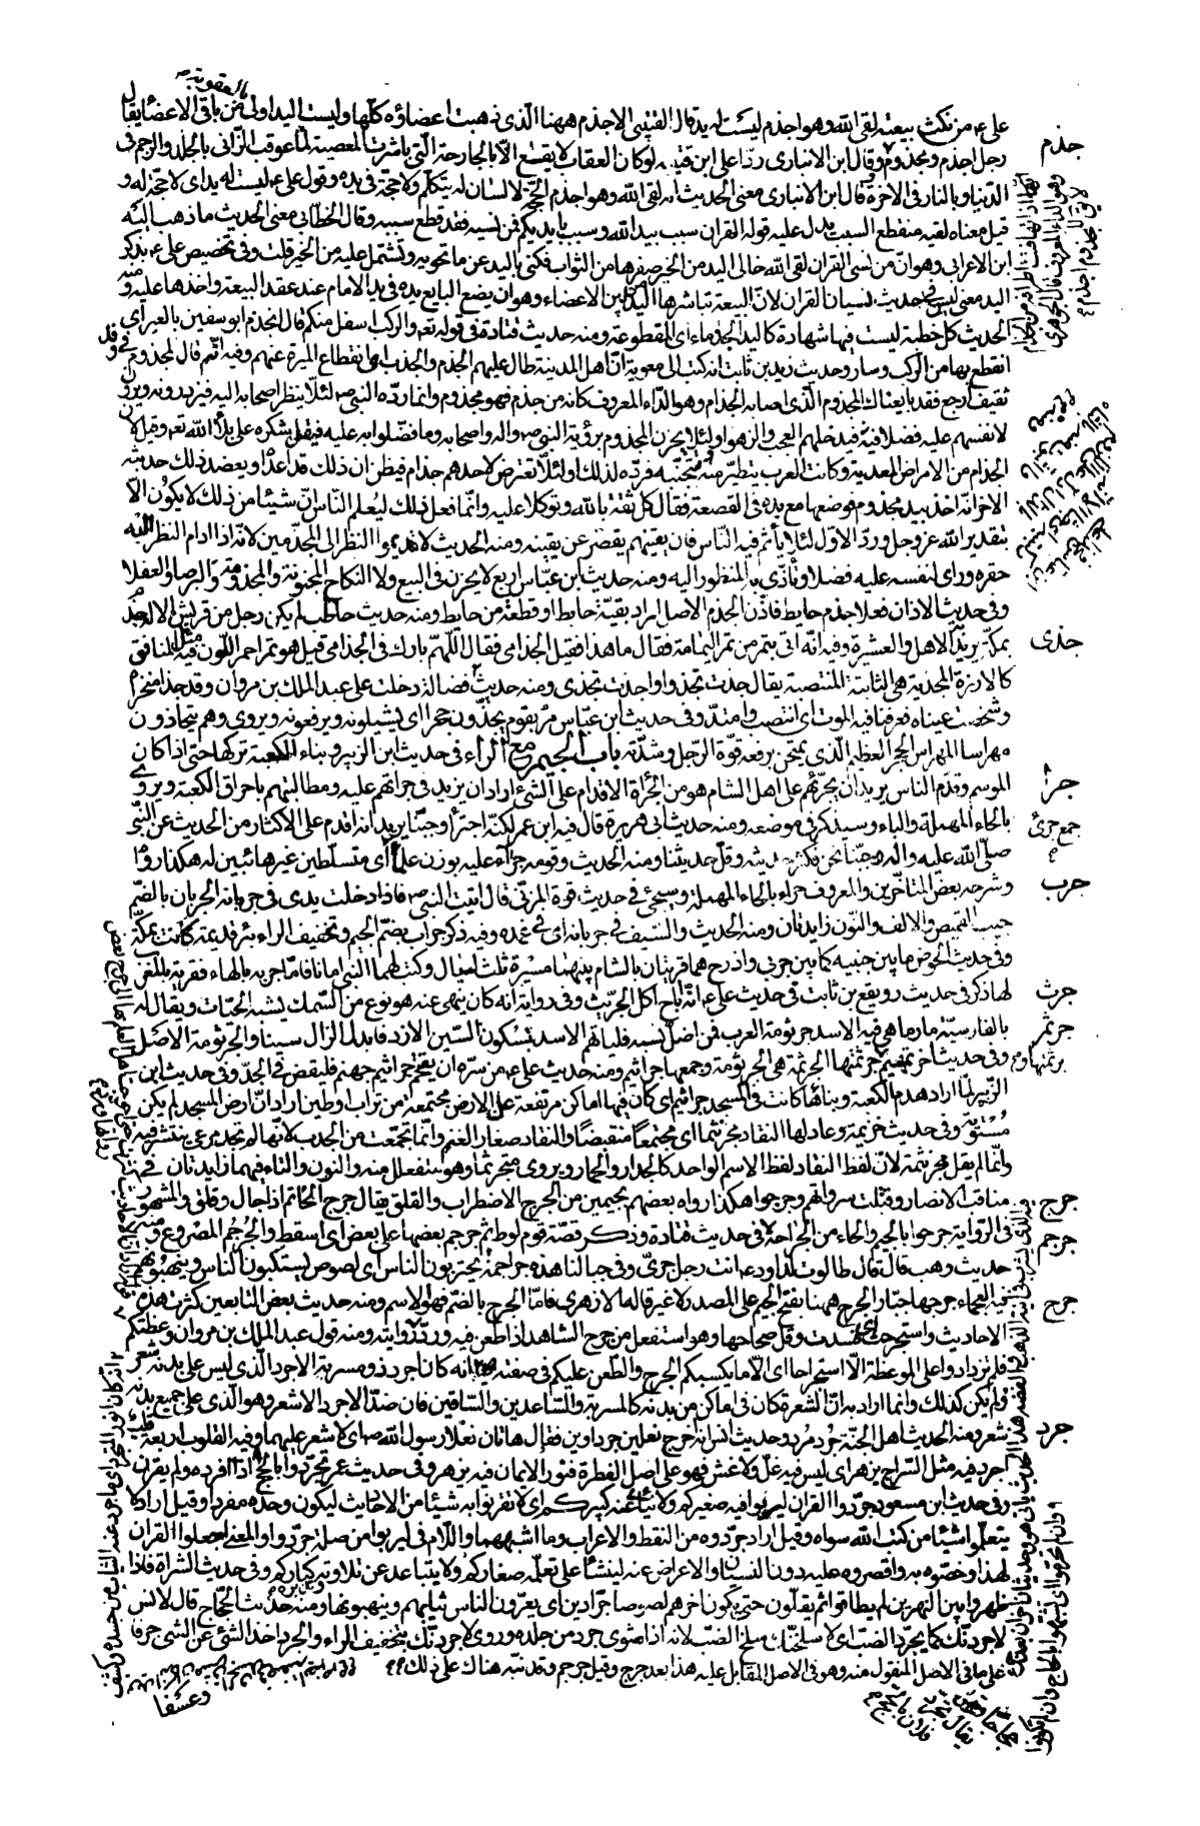 على من نكث بيعته لقى الله وهو اجذم ليست له يد قال القتيبى الاجذم ههنا الذى ذهبت اعضاؤه كلها وليست اليد اولى من باقى الاعضاء يقال
بالعقوبة
جذم
رجل اجذم ومجذوم وقال ابن الانبارى ردا على ابن قتيبة لو كان العقاب لا يقع الا بالجارحة التى باشرت المعصية لما عوقب الزانى بالجلد والرجم فى
الدنيا وبالنار فى الاخرة وقال ابن الانبارى معنى الحديث انه لقى الله وهو اجذم الحجة لا لسان له يتكلم ولا حجة فى يده وقول على ليست له يد اى لا حجة له و
قيل معناه لقيه منقطع السبب يدل عليه قوله القران سبب بيد الله وسبب بايديكم فمن نسيه فقد قطع سببه وقال الخطابى معنى الحديث ما ذهب اليه
ابن الاعرابى وهو ان من نسى القران لقى الله خالى اليد من الخير صفرها من الثواب فكنى باليد عن ما تحويه وتشتمل عليه من الخير قلت وفى تخصيص على بذكر
اليد معنى ليس فى حديث نسيان القران لان البيعة تباشرها اليد من بين الاعضاء وهو ان يضع البايع يده فى يد الامام عند عقد البيعة واخذها عليه ومنه
الحديث كل خطبة ليست فيها شهادة كاليد الجذماء اى المقطوعة ومنه حديث قتادة فى قوله تعم والركب اسفل منكم قال انجذم ابو سفين بالعير اى
انقطع بها من الركب وسار وحديث زيد بن ثابت انه كتب الى معوية ان اهل المدينة طال عليهم الجذم والجذب اى انقطاع الميرة عنهم وفيه انه قال لمجذوم فى وفد
ثقيف ارجع فقد بايعناك المجذوم الذى اصابه الجذام وهو الداء المعروف كانه من جذم فهو مجذوم وانما رده النبى لئلا ينظر اصحابه اليه فيزدرونه ويرون
لانفسهم عليه فضلا فيدخلهم العجب والزهو او لئلا يحزن المجذوم برؤية النبى واله واصحابه وما فضلوا به عليه فيقل شكره على بلاء الله تعم وقيل لان
الجذام من الامراض المعدية وكانت العرب تتطير منه وتتجنبه فرده لذلك او لئلا تعرض لاحدهم جذام فيظن ان ذلك قد اعداه ويعضد ذلك حديثه
الاخر انه اخذ بيد مجذوم فوضعها مع يده فى القصعة فقال كل ثقة بالله وتوكلا عليه وانما فعل ذلك ليعلم الناس ان شيئا من ذلك لا يكون الا
بتقدير الله عز وجل ورد الاول لئلا ياثم فيه الناس فان يقينهم يقصر عن يقينه ومنه الحديث لا تديموا النظر الى المجذمين لانه اذا ادام النظر اليه
حقره وراى لنفسه عليه فضلا وتاذى به المنظور اليه ومنه حديث ابن عباس اربع لا يجزن فى البيع ولا النكاح المجنونة والمجذومة والبرصاء والعفلاء
وفى حديث الاذان فعلا جذم حايط فاذن الجذم الاصل اراد بقية حايط او قطعة من حايط ومنه حديث حاطب لم يكن رجل من قريش الا له جذم
بمكة يريد الاهل والعشيرة وفيه انه اتى بتمر من تمر اليمامة فقال ما هذا فقيل الجذامى فقال اللهم بارك فى الجذامى قيل هو تمر احمر اللون فيه مثل المنافق
جذى
كالارزة المجذية هى الثابتة المنتصبة يقال جذت تجذو واجذت تجذى ومنه حديث فضالة دخلت على عبد الملك بن مروان وقد جذا منخراه
وشخصت عيناه فعرفنا فيه الموت اى انتصب وامتد وفى حديث ابن عباس مر بقوم يجذون حجرا اى يشيلونه ويرفعونه ويروى وهم يتجاذون
مهراسا المهراس الحجر العظيم الذى يمتحن برفعه قوة الرجل وشدته باب الجيم مع الراء فى حديث ابن الزبير وبناء الكعبة تركها حتى اذا كان
جرأ
الموسم وقدم الناس يريد ان يجرئهم على اهل الشام هو من الجرأة الاقدام على الشئ اراد ان يزيد فى جراتهم عليه ومطالبتهم باحراق الكعبة ويروى
جمع جرئ
بالحاء المهملة والباء وسيذكر فى موضعه ومنه حديث ابى هريرة قال فيه ابن عمر لكنه اجترأ وجبنا يريد انه اقدم على الاكثار من الحديث عن النبى
صلى الله عليه واله وجبنا نحن فكثر حديثه وقل حديثنا ومنه الحديث وقومه جرآء عليه بوزن علماء اى متسلطين غير هائبين له هكذا رواه
جرب
وشرحه بعض المتاخرين والمعروف حراء بالحاء المهملة وسيجئ فى حديث قرة المزنى قال اتيت النبى فاذا دخلت يدى فى جربانه الجربان بالضم
جيب القميص والالف والنون زايدتان ومنه الحديث والسيف فى جربانه اى فى غمده وفيه ذكر جراب بضم الجيم وتخفيف الراء بئر قديمة كانت بمكة
وفى حديث الحوض ما بين جنبيه كما بين جربى واذرح هما قريتان بالشام بينهما مسيرة ثلث ليال وكتب لهما النبى امانا فاما جربه بالهاء فقرية بالمغرب
جرث
لها ذكر فى حديث رويفع بن ثابت فى حديث على انه اباح اكل الجريث وفى رواية انه كان ينهى عنه هو نوع من السمك يشبه الحيات ويقال له
جرثم
بالفارسية مارماهى فيه الاسد جرثومة العرب فمن اضل نسبه فلياتهم الاسد بسكون السين الازد فابدل الزال سينا والجرثومة الاصل
وفى حديث اخر تميم برثمتها وجرثمتها الجرثمة هى الجرثومة وجمعها جراثيم ومنه حديث على من سره ان يتقحم جراثيم جهنم فليقض فى الجد وفى حديث ابن
الزبير لما اراد هدم الكعبة وبناها كانت فى المسجد جراثيم اى كان فيها اماكن مرتفعة على الارض مجتمعة من تراب او طين اراد ان ارض المسجد لم يكن
مستوية وفى حديث خزيمة وعاد لها النقاد مجرنثما اى مجتمعا منقبضا والنقاد صغار الغنم وانما تجمعت من الجدب لانها لم تجد مرعى ينتشر فيه
وانما لم يقل مجرنثمة لان لفظ النقاد لفظ الاسم الواحد كالجدار والحمار ويروى متجرثما وهو متفعلل منه والنون والتاء فيهما زايدتان فى
جرج
مناقب الانصار وقتلت سرواتهم وجرجوا هكذا رواه بعضهم بجيمين من الجرج الاضطراب والقلق يقال جرج الخاتم اذا جال وقلق والمشهور
جرجم
فى الرواية جرحوا بالجيم والحاء من الجراحة فى حديث قتادة وذكر قصة قوم لوط ثم جرجم بعضها على بعض اى اسقط والجرجم المصروع ومنه
حديث وهب قال قال طالوت لداود انت رجل جرئ وفى جبالنا هذه جراجمة يحتربون الناس اى لصوص يستلبون الناس وينهبونهم
جرح
فيه العجماء جرحها جبار الجرح ههنا بفتح الجيم على المصدر لا غير قاله الازهرى فاما الجرح بالضم فهو الاسم ومنه حديث بعض التابعين كثرت هذه
الاحاديث واستجرحت اى فسدت وقل صحاحها وهو استفعل من جرح الشاهد اذا طعن فيه ورد روايته ومنه قول عبد الملك بن مروان وعظتكم
فلم تزدادوا على الموعظة الا استجراحا اى الا ما يكسبكم الجرح والطعن عليكم فى صفته انه كان اجرد ذو مسربة الاجرد الذى ليس على بدنه شعر
ولم يكن كذلك وانما اراد به ان الشعر كان فى اماكن من بدنه كالمسربة والساعدين والساقين فان ضد الاجرد الاشعر وهو الذى على جميع بدنه
جرد
شعر ومنه الحديث اهل الجنة جرد مرد وحديث انس انه اخرج نعلين جرداوين فقال هاتان نعلا رسول الله اى لا شعر عليهما وفيه القلوب اربعة قلب
اجرد فيه مثل السراج يزهر اى ليس فيه غل ولا غش فهو على اصل الفطرة فنور الايمان فيه يزهر وفى حديث عمر تجردوا بالحج اذا افرده ولم يقرن
وفى حديث ابن مسعود جردوا القران ليربو فيه صغيركم ولا ينأى عنه كبيركم اى لا تقرنوا به شيئا من الاحاديث ليكون وحده مفردا وقيل اراد لا
يتعلموا شيئا من كتب الله سواه وقيل اراد جردوه من النقط والاعراب وما اشبههما واللام فى ليربو من صلة جردوا والمعنى اجعلوا القران
لهذا وخصوه به واقصروه عليه دون النسيان والاعراض عنه لينشأ على تعلمه صغاركم ولا يتباعد عن تلاوته كباركم وفى حديث الشراة فاذا
ظهروا بين النهرين لم يطاقوا ثم يقلون حتى يكون اخرهم لصوصا جرادين اى يعرون الناس ثيابهم وينهبونها ومنه حديث الحجاج قال لانس
لاجردنك كما يجرد الضب اى لاسلخنك سلخ الضب لانه اذا شوى جرد من جلده وروى لاجردنك بتخفيف الراء والجرد اخذ الشئ عن الشئ جرفا
على ما فى الاصل المنقول منه وهو فى الاصل المقابل عليه هذا بعد جرج وقيل جرجم وقد نبه هناك على ذلك
وعسفا